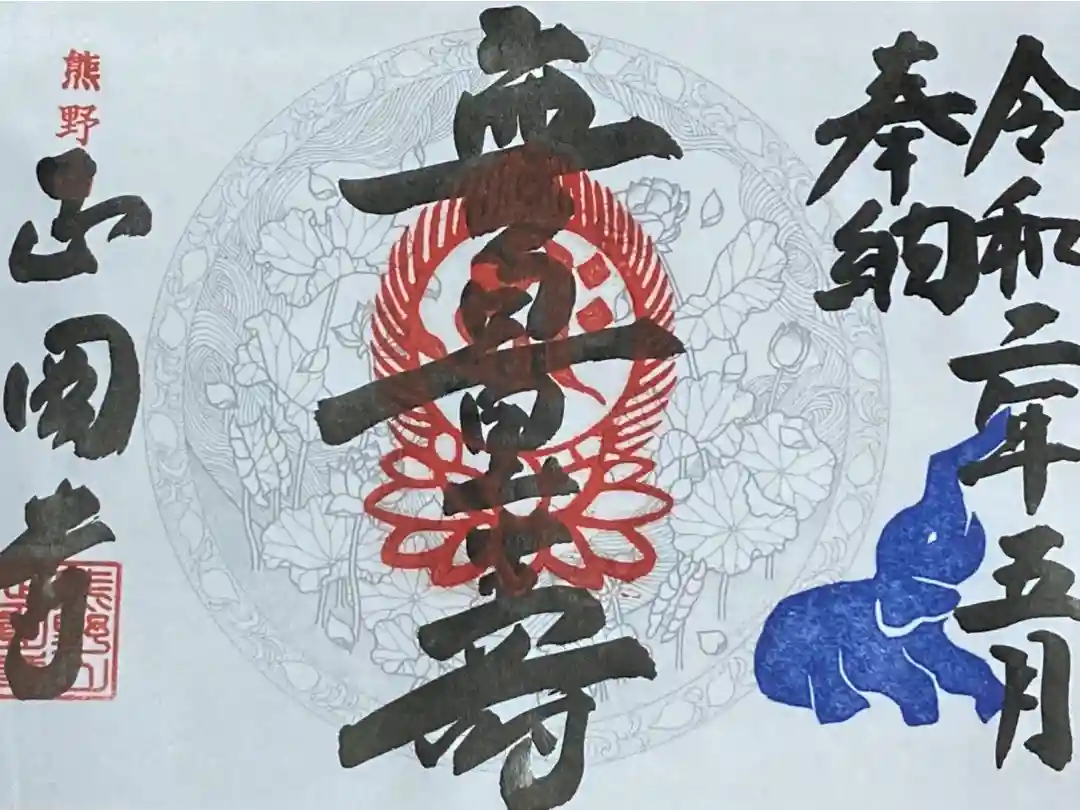 令和二年五月
奉納
無量壽
熊野
正圀寺